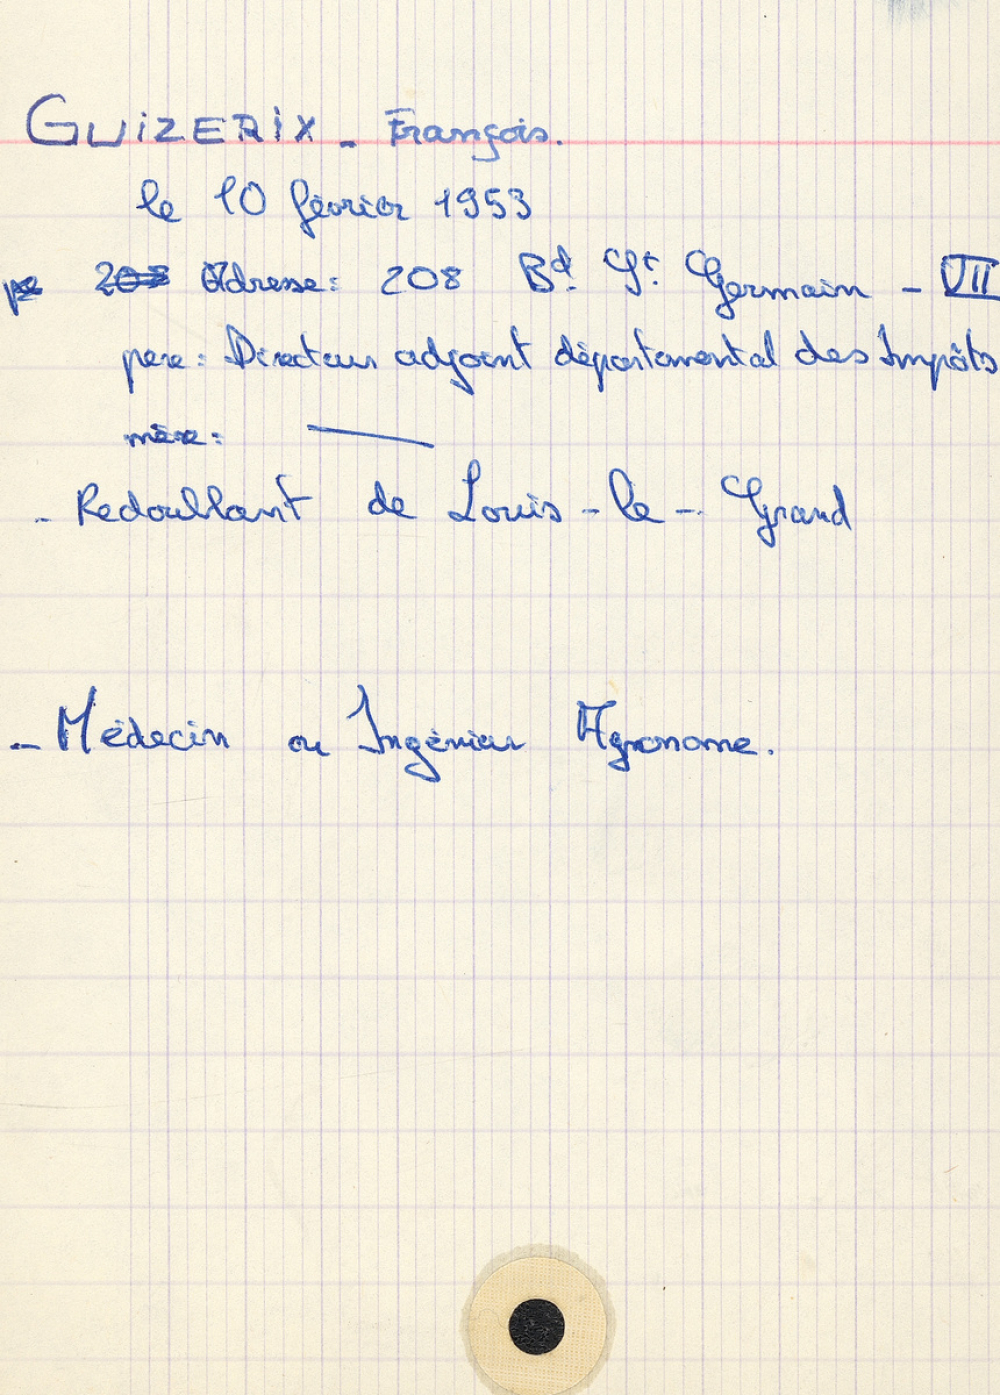 GUIZERIX - François.
le 10 février 1953
Adresse: 208 Bd. St. Germain - VII
père: Directeur adjoint départemental des Impôts
mère: ——
- Redoublant de Louis-le-Grand
- Médecin ou Ingénieur Agronome.